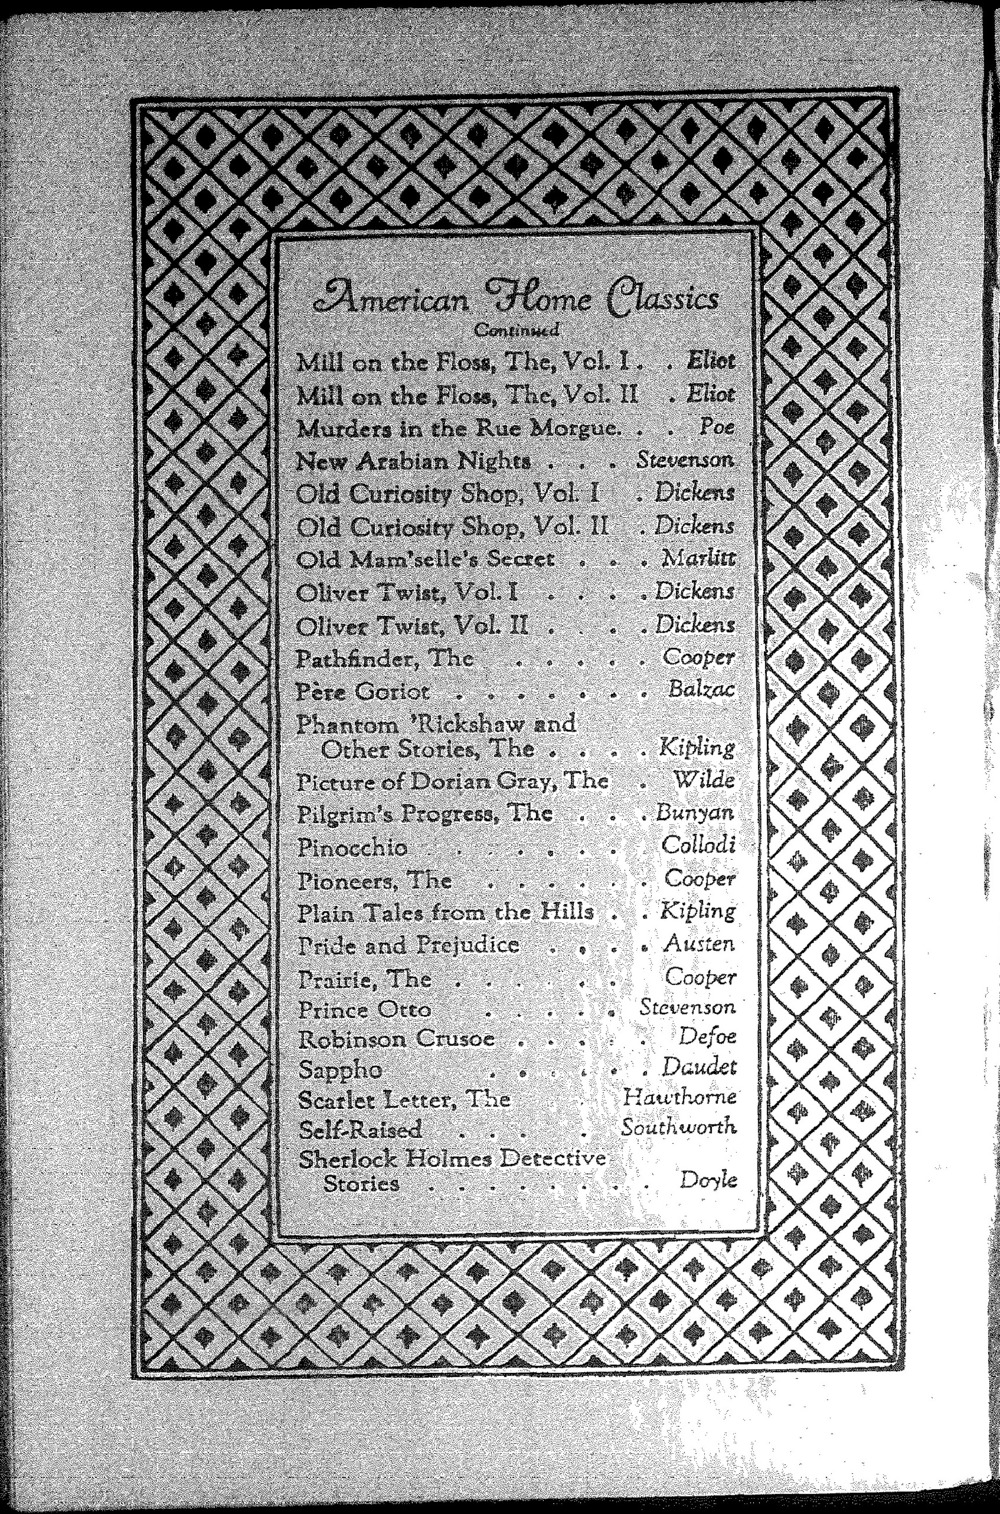 American Home Classics
Continued
Mill on the Floss, The, Vol. I . . Eliot
Mill on the Floss, The, Vol. II . Eliot
Murders in the Rue Morgue. . . Poe
New Arabian Nights . . . Stevenson
Old Curiosity Shop, Vol. I . Dickens
Old Curiosity Shop, Vol. II . Dickens
Old Mam'selle's Secret . . . Marlitt
Oliver Twist, Vol. I . . . . Dickens
Oliver Twist, Vol. II . . . . Dickens
Pathfinder, The . . . . . Cooper
Père Goriot . . . . . . . Balzac
Phantom 'Rickshaw and
Other Stories, The . . . . Kipling
Picture of Dorian Gray, The . Wilde
Pilgrim's Progress, The . . . Bunyan
Pinocchio . . . . . . Collodi
Pioneers, The . . . . . . Cooper
Plain Tales from the Hills . . Kipling
Pride and Prejudice . . . . Austen
Prairie, The . . . . . . Cooper
Prince Otto . . . . . Stevenson
Robinson Crusoe . . . . . Defoe
Sappho . . . . . . Daudet
Scarlet Letter, The . Hawthorne
Self-Raised . . . . Southworth
Sherlock Holmes Detective
Stories . . . . . . . . Doyle